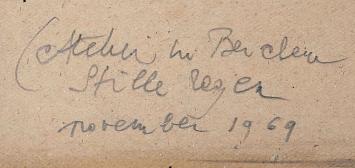 (Atelier in Berchem
Stille regen
november 1969